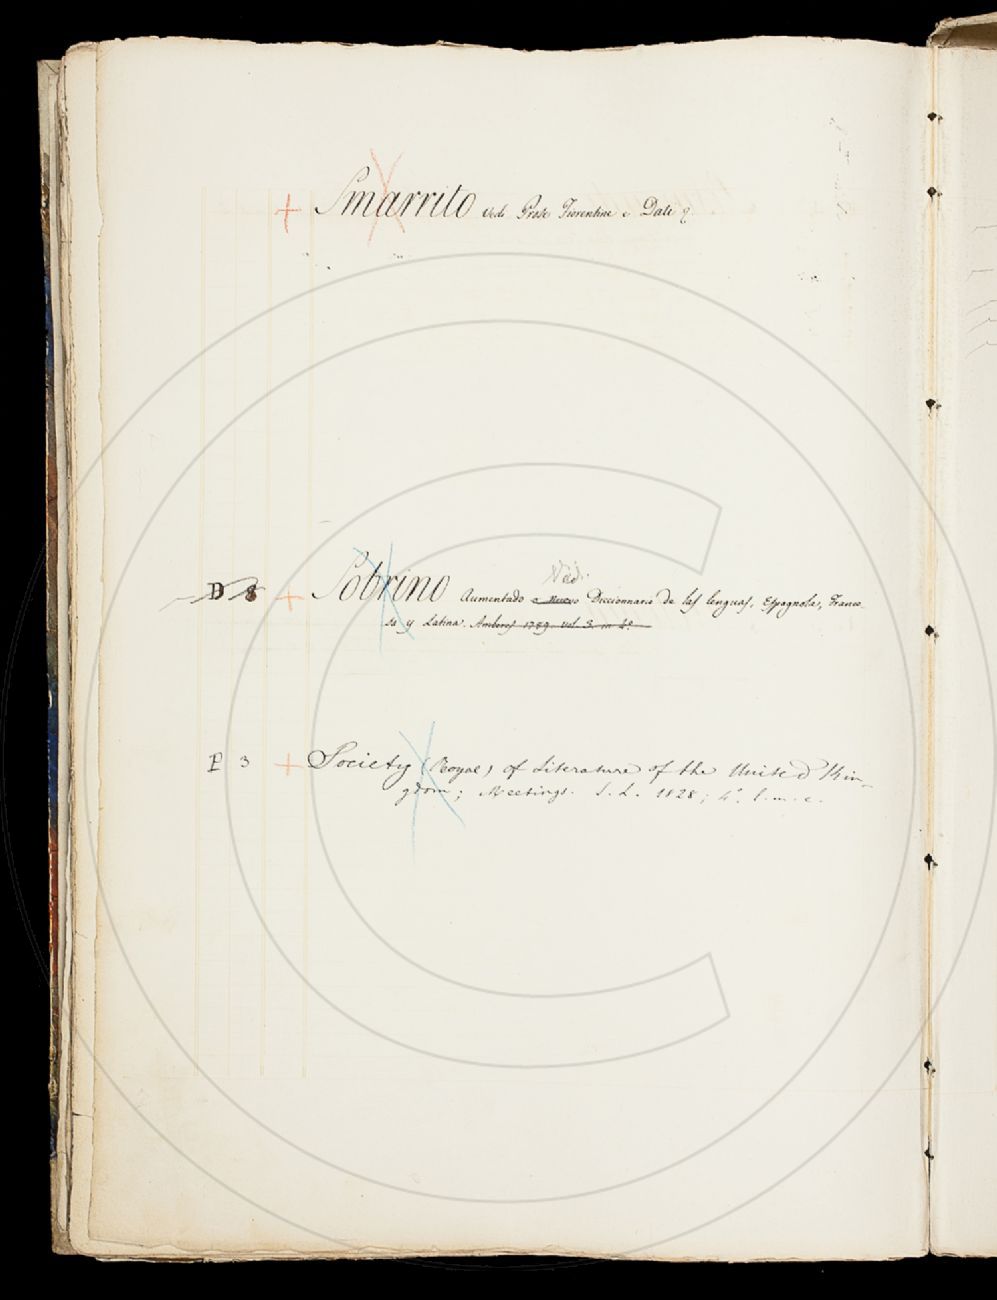 + Smarrito Vedi Prose Fiorentine e Dati
Vedi
D 8 + Sobrino Aumentado o Nuevo Diccionnario de las lenguas, Espagnola, France-
sa y Latina. Amberes 1789. vol. 3. in 4.º
P 3 + Society (Royal) of Literature of the United Kin-
gdom; Meetings. S. L. 1828; 4.º l. m. c.